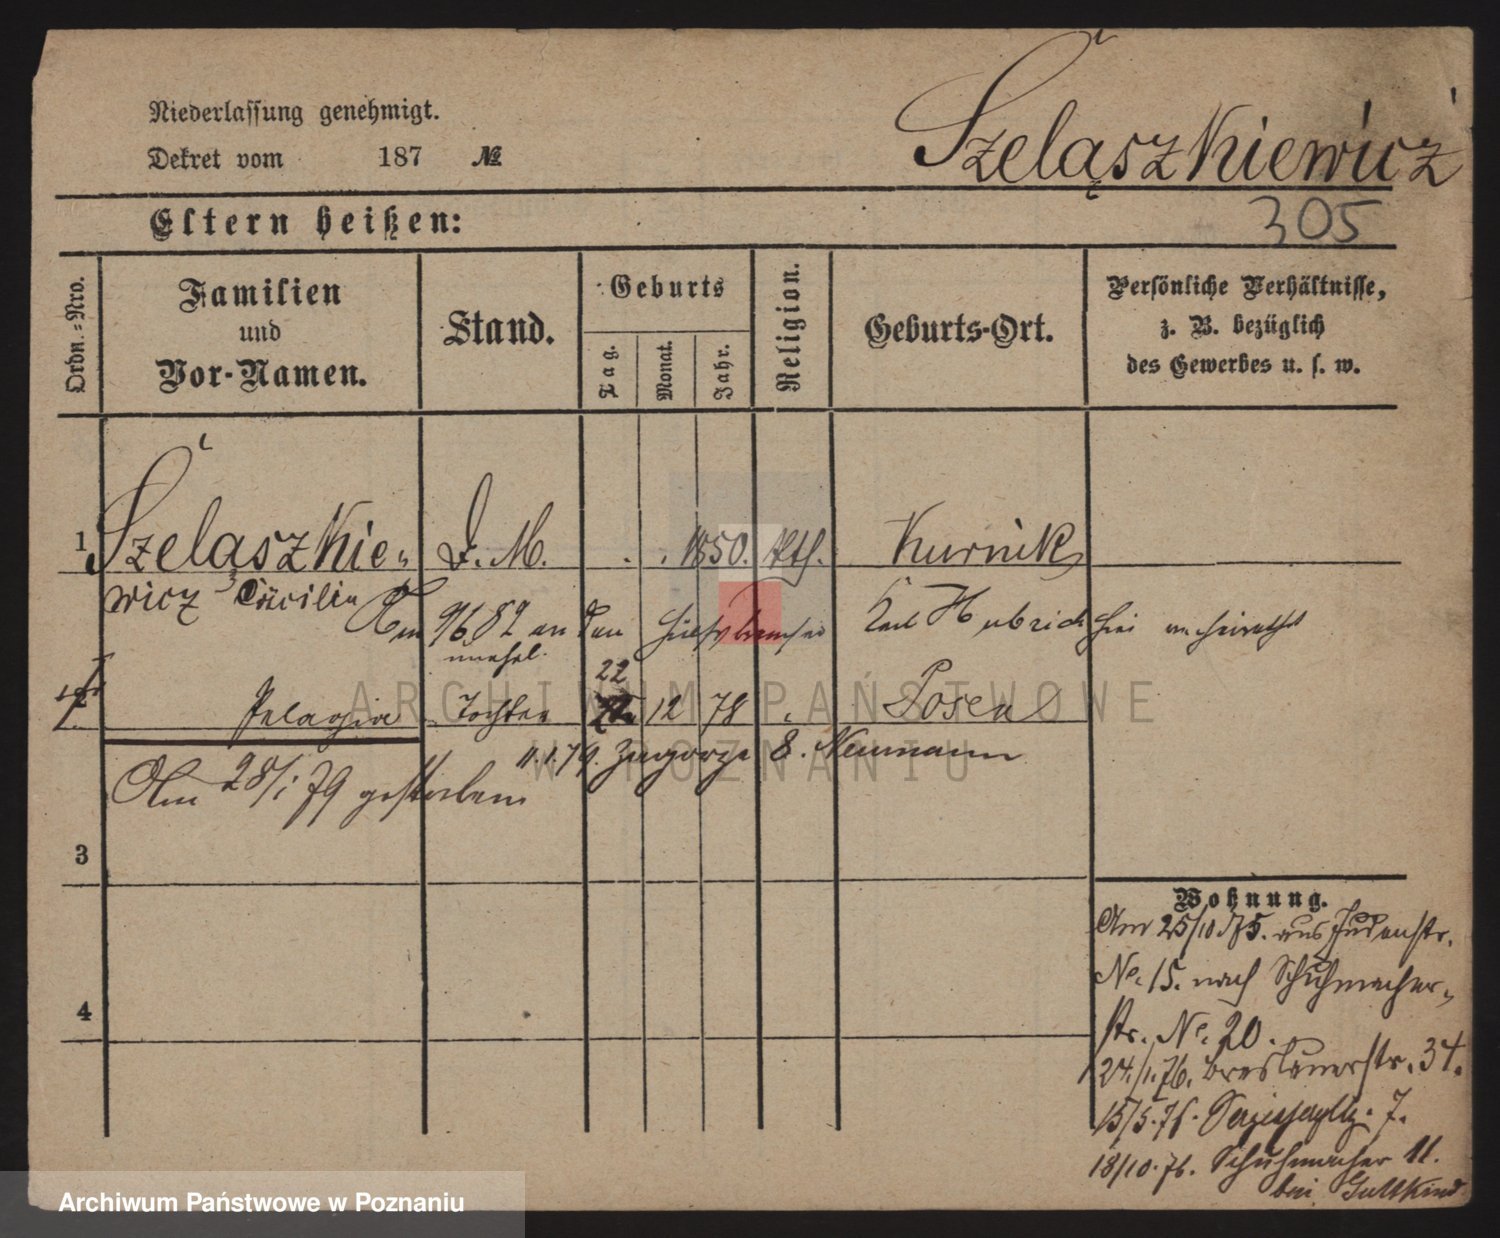 Niederlassung genehmigt.
Dekret vom 187 №
Szeląszkiewicz
305
Eltern heißen:
Ordn.-Nro.
Familien
und
Vor-Namen.
Stand.
Geburts
Tag.
Monat.
Jahr.
Religion.
Geburts-Ort.
Persönliche Verhältnisse,
z. B. bezüglich
des Gewerbes u. s. w.
1 Szeląszkie- D. M. . . 1850. kth. Kurnik
wicz Cäcilia Am 9/6 82 an den Karl Hubrich hier verheirathet
unehel.
22
Pelagia Tochter 12 78 Posen
11.1.79. Zagorze 8. Neumann
Am 28/1 79 gestorben
3
4
Wohnung.
Am 25/10 75. aus Judenstr.
No. 15. nach Schuhmacher-
str. No. 20.
24/1.76. Breslauerstr. 34.
15/5.76. 7.
18/10.76. Schuhmacher 11.
bei Guttkind
ARCHIWUM PAŃSTWOWE
W POZNANIU
Archiwum Państwowe w Poznaniu